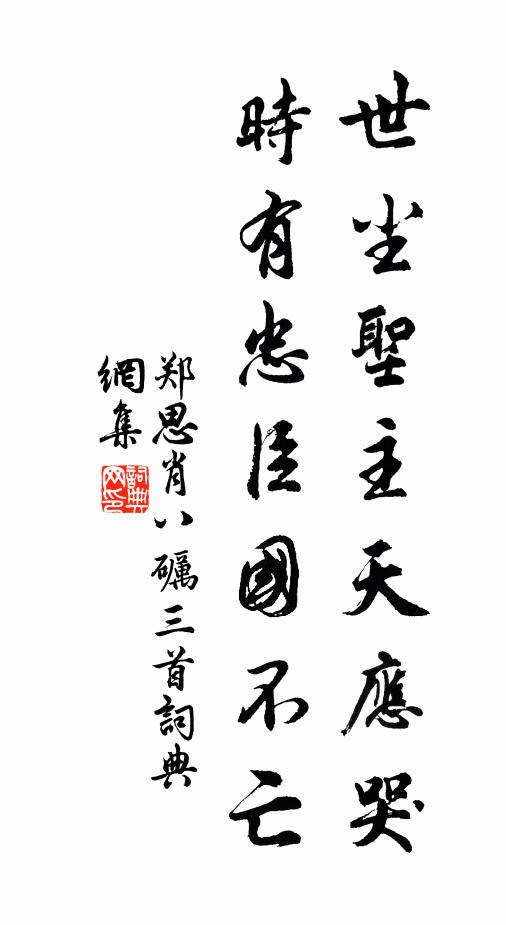 世尘聖主天應哭
時有忠臣國不亡
郑思肖八礪三首詞典
網集
詞典網印